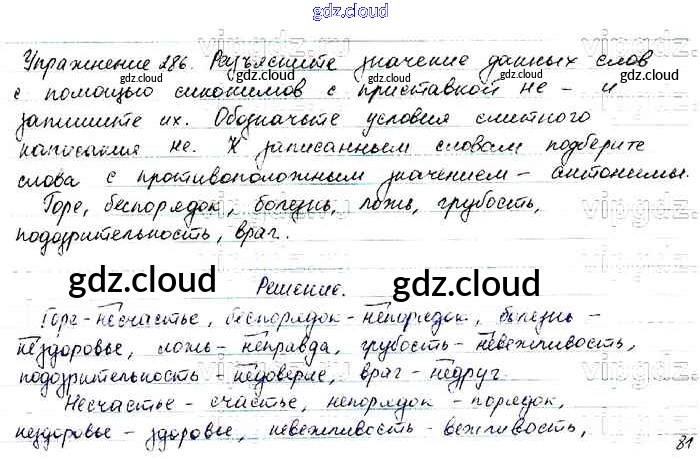 gdz.cloud
Упражнение 286. Разъясните значение данных слов
с помощью синонимов с приставкой не - и
запишите их. Обозначьте условия слитного
написания не. К записанным словам подберите
слова с противоположным значением - антонимы.
Горе, беспорядок, болезнь, ложь, грубость,
подозрительность, враг.
gdz.cloud gdz.cloud
Решение.
Горе - несчастье, беспорядок - непорядок, болезнь -
нездоровье, ложь - неправда, грубость - невежливость,
подозрительность - недоверие, враг - недруг.
Несчастье - счастье, непорядок - порядок,
нездоровье - здоровье, невежливость - вежливость,
81